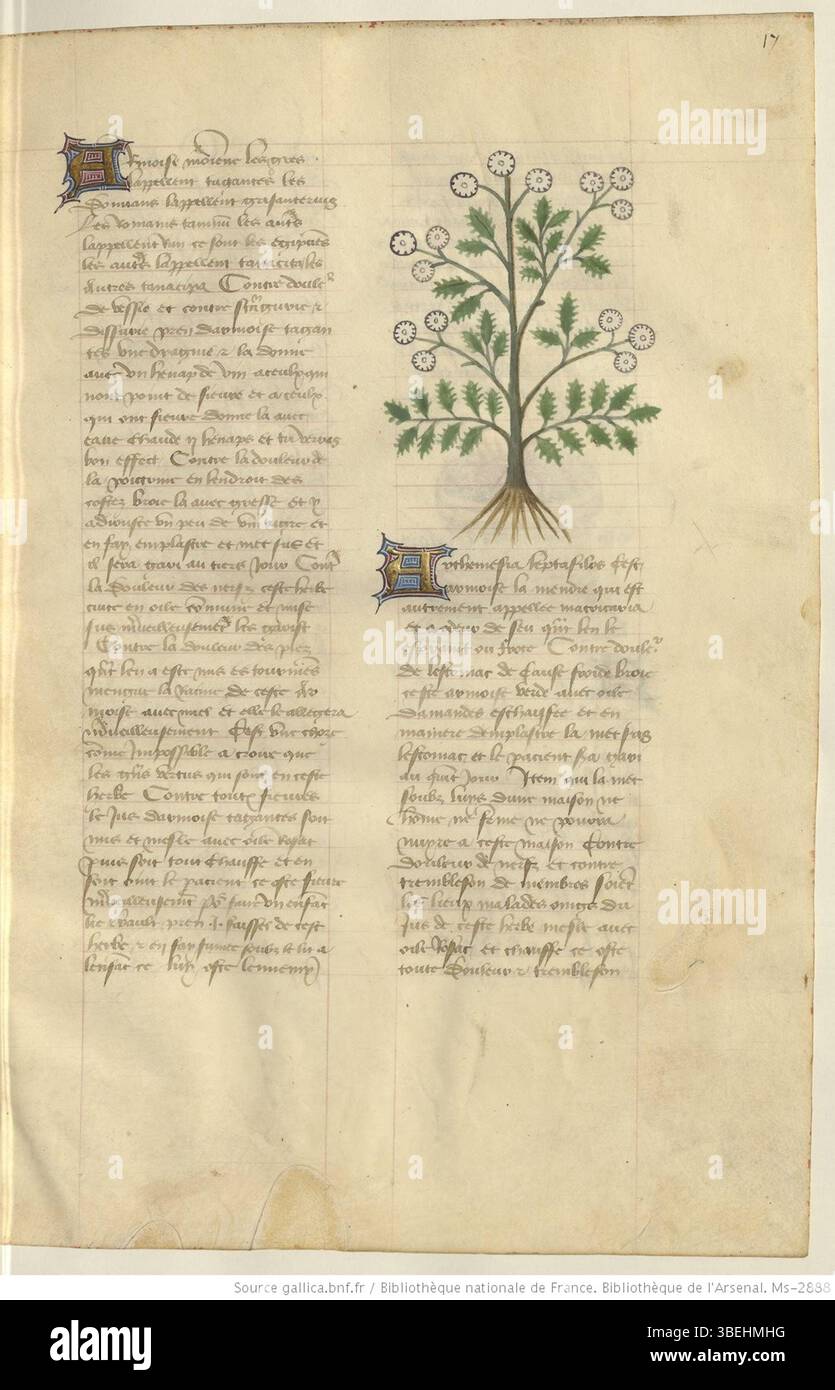 17
Armoise moienne les grecs
lappellent tagantes les
Les romains tanum les autres
lappellent vin ce sont les egiptiens
les autres lappellent
autres tanacipa Contre douler
de vessie et contre stranguirie et
dissurie pren darmoise tagan
tes vne dragme et la donne
auec vn henap de vin a ceulx qui
nont point de fieure et a ceulx
qui ont fieure donne la auec
eaue chaude ij henaps et tu verras
bon effect Contre la douleur de
la poictrine en lendroit des
costez broie la auec gresse et y
adiouste vn peu de vinaigre et
en fay emplastre et met sus et
il sera gari au tiers Jour Contre
la douleur des nerfz ceste herbe
cuite en oile commune et mise
sus merueilleusement les garist
Contre la douleur des piez
quant len a este mis es tourmens
mengue la racine de ceste ar
moise auec miel et elle le allegera
merueilleusement Cest vne chose
comme Impossible a croire que
les grans vertus qui sont en ceste
herbe Contre toutes fieures
le Jus darmoise tagantes soit
mis et mesle auec oile rosat
puis soit tout chauffe et en
soit oint le pacient ce oste fieure
merueilleusement Pour faire vn enfant
lie et bault pren .i. faissel de cest
herbe et en fay fumee soubz le lit a
lenfant ce luy oste lennemy
Arthemesia leptafilos cest
armoise la mendre qui est
autrement appellee matricaria
et a odeur de seu quant len le
ou froie Contre douler
de lestomac de cause froide broie
ceste armoise verde auec oile
damandes eschauffee et en
maniere demplastre la met sus
lestomac et le pacient sera gari
au quint Jour Item qui la met
soubz luys dune maison ne
homme ne femme ne pourra
nuyre a ceste maison Contre
douleur de nerfz et contre
trembleson de membres soient
les lieux malades oingz du
Jus de ceste herbe mesle auec
oile rosat et chauffe ce oste
toute douleur et trembleson
alamy
Source gallica.bnf.fr / Bibliothèque nationale de France. Bibliothèque de l'Arsenal. Ms-2888
alamy
Image ID: 3BEHMHG
www.alamy.com